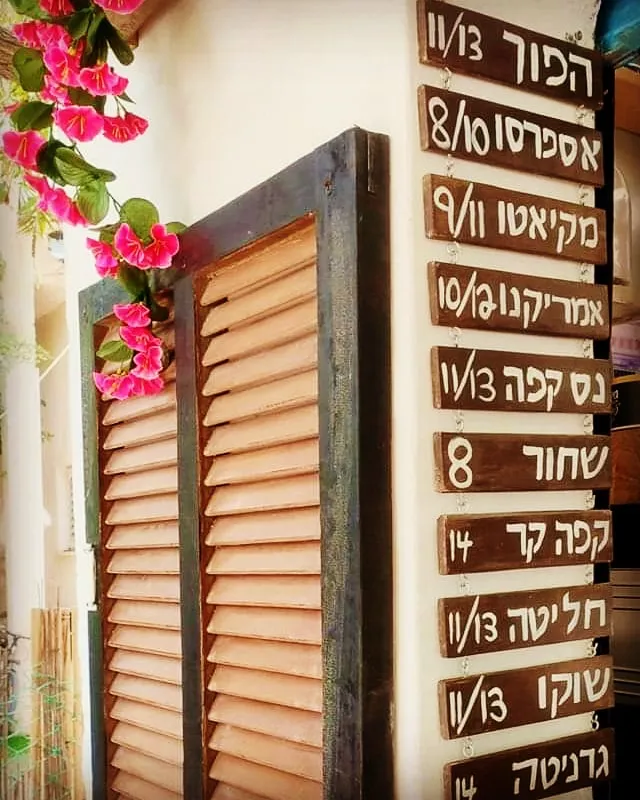 הפוך 11/13
אספרסו 8/10
מקיאטו 9/11
אמריקנו 10/12
נס קפה 11/13
שחור 8
קפה קר 14
חליטה 11/13
שוקו 11/13
גרניטה 14